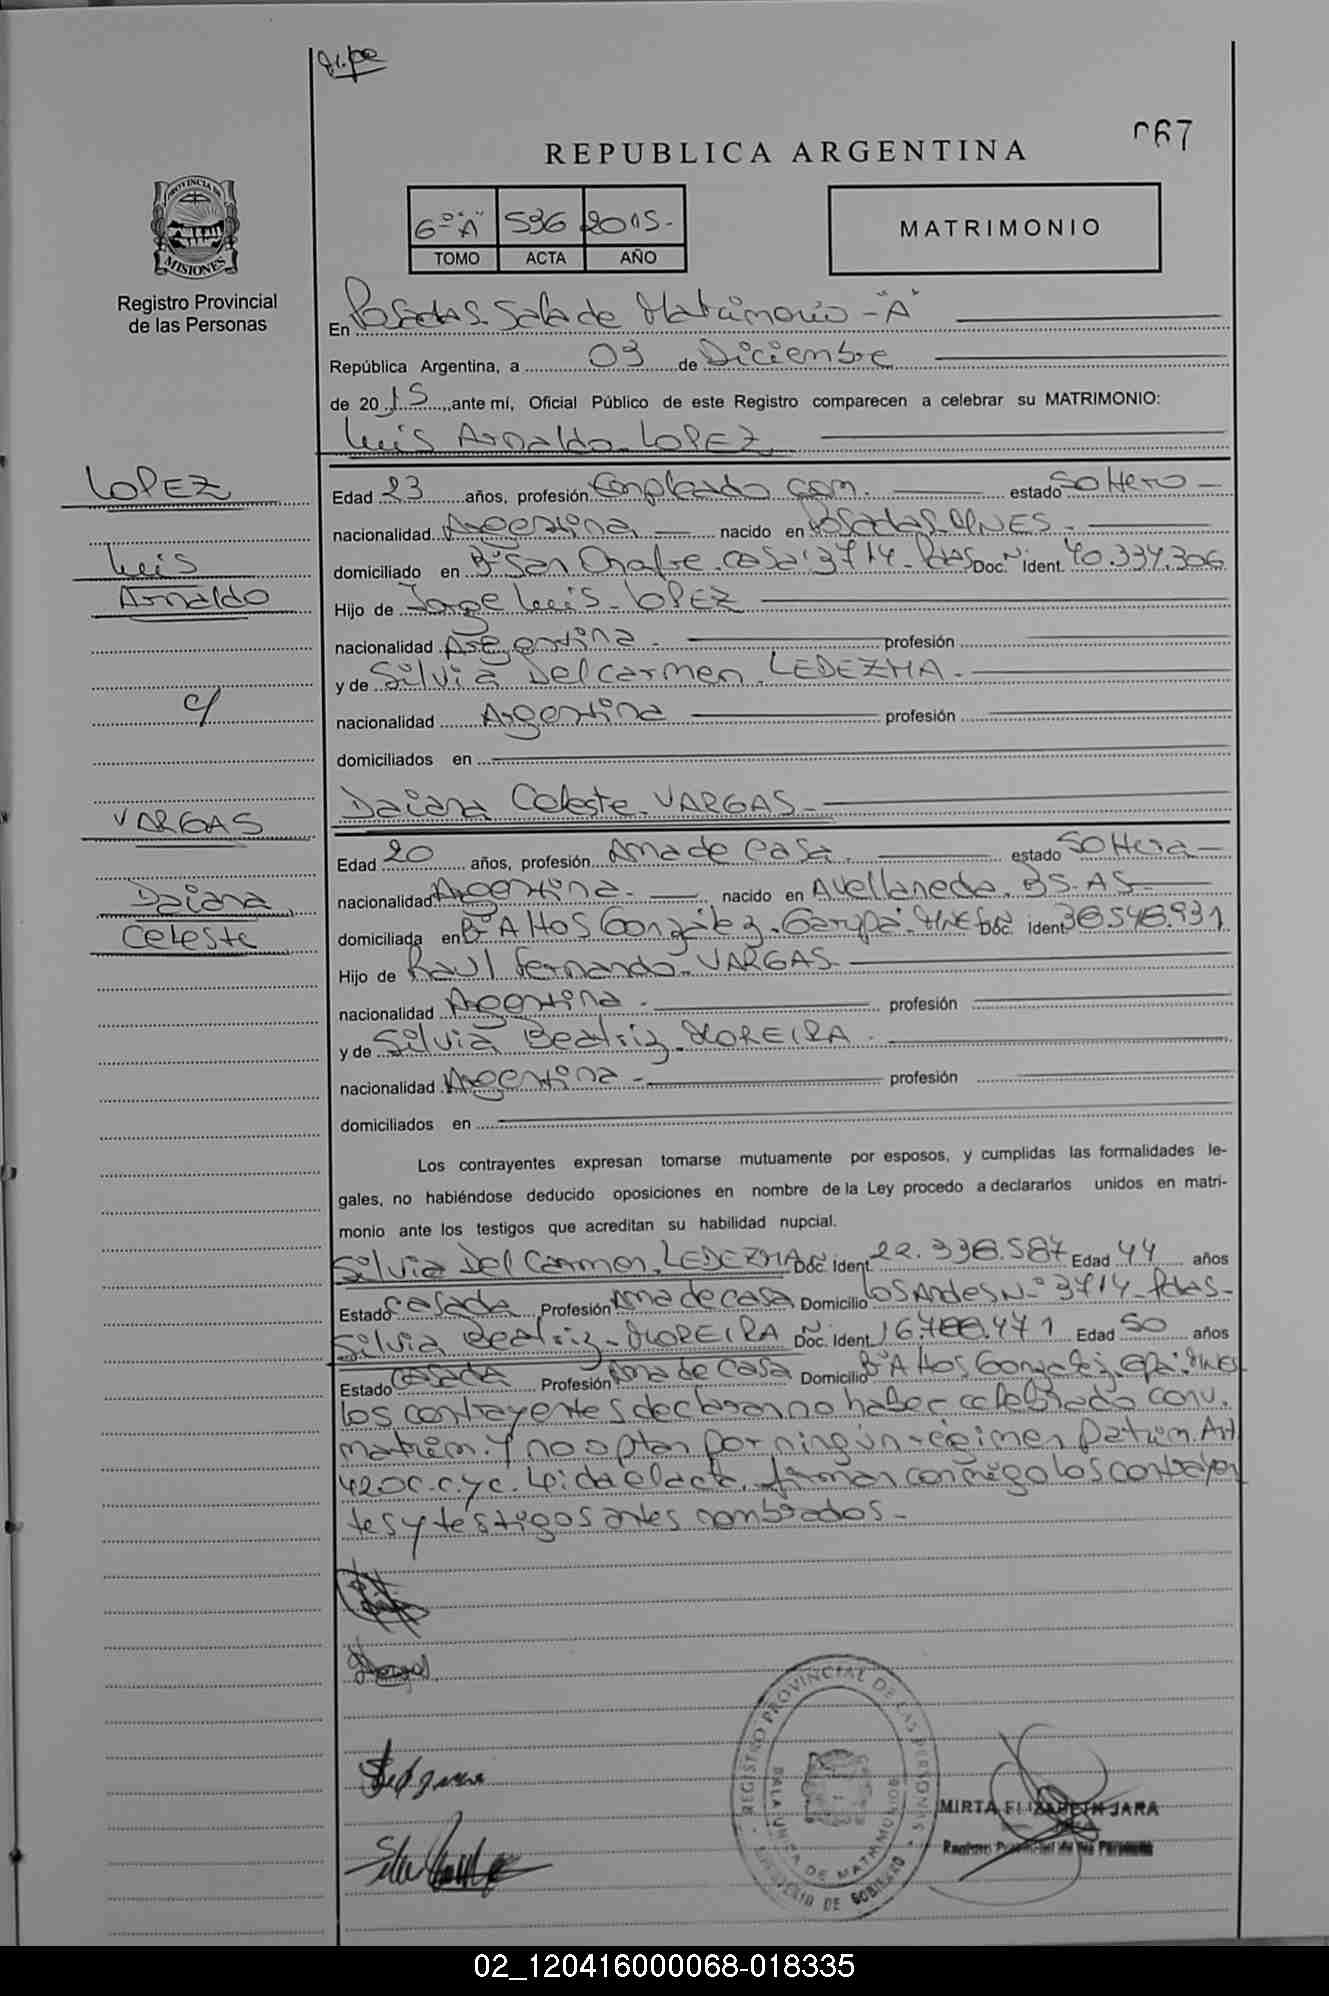 067
REPUBLICA ARGENTINA
PROVINCIA DE
MISIONES
Registro Provincial
de las Personas
6º "A" 536 2015.-
TOMO ACTA AÑO
MATRIMONIO
En Posadas. Sala de Matrimonio - "A"
República Argentina, a 03 de Diciembre
de 2015, ante mí, Oficial Público de este Registro comparecen a celebrar su MATRIMONIO:
Luis Arnaldo LOPEZ
LOPEZ
Luis
Arnaldo
c/
VARGAS
Daiana
Celeste
Edad 23 años, profesión Empleado com. estado Soltero -
nacionalidad Argentina nacido en Posadas. MNES -
domiciliado en Bº San Onofre. casa: 3714. Pdas Doc. Ident. 40.334.306
Hijo de Jorge Luis LOPEZ
nacionalidad Argentina - profesión
y de Silvia Del Carmen. LEDEZMA -
nacionalidad Argentina profesión
domiciliados en
Daiana Celeste VARGAS -
Edad 20 años, profesión Ama de casa. estado Soltera -
nacionalidad Argentina. nacido en Avellaneda. BS. AS
domiciliada en Bº Altos Gonzalez. Garupa. MNES Doc. Ident 38.548.931
Hijo de Raul Fernando VARGAS -
nacionalidad Argentina - profesión
y de Silvia Beatriz MOREIRA -
nacionalidad Argentina - profesión
domiciliados en
Los contrayentes expresan tomarse mutuamente por esposos, y cumplidas las formalidades le-
gales, no habiéndose deducido oposiciones en nombre de la Ley procedo a declararlos unidos en matri-
monio ante los testigos que acreditan su habilidad nupcial.
Silvia Del Carmen. LEDEZMA Doc. Ident. 22.336.587 Edad 44 años
Estado casada Profesión Ama de casa Domicilio Los Andes Nº 3714 - Pdas -
Silvia Beatriz MOREIRA Doc. Ident. 16.788.471 Edad 50 años
Estado Casada Profesión Ama de casa Domicilio Bº Altos Gonzalez Gpa. MNES
los contrayentes declaran no haber celebrado conv.
matrim. y no optan por ningún régimen patrim. Art
420 C.C. y C. Leida el acta, firman conmigo los contrayen
tes y testigos antes nombrados. -
REGISTRO PROVINCIAL DE LAS PERSONAS
SALA UNICA DE MATRIMONIOS
MINISTERIO DE GOBIERNO
MIRTA ELIZABETH JARA
Registro Provincial de las Personas
02_120416000068-018335